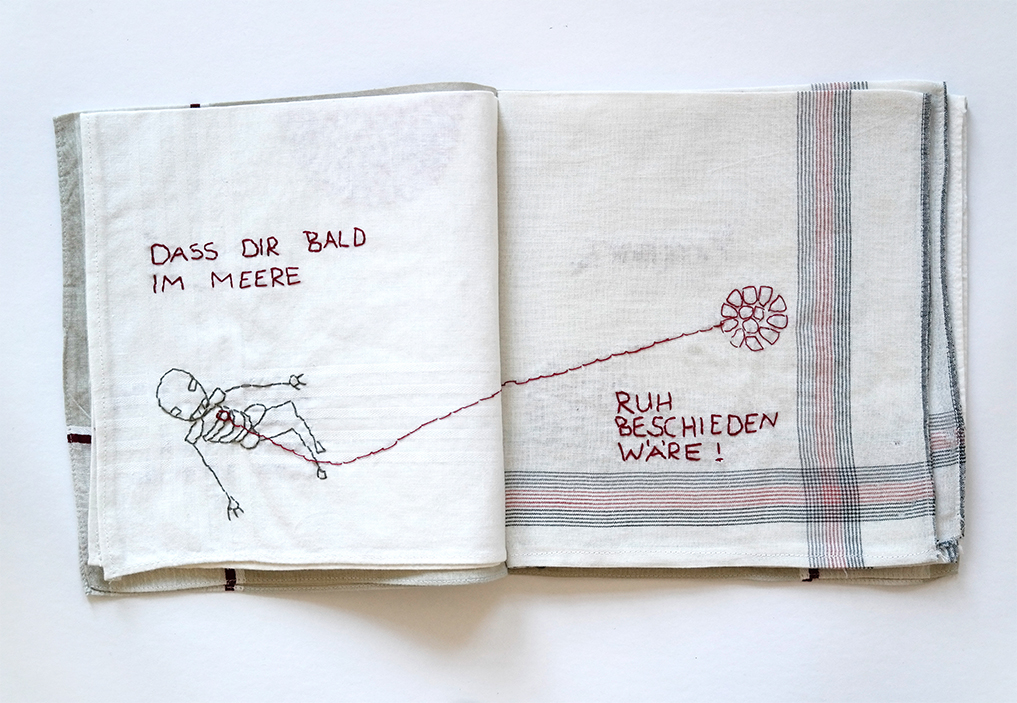 DASS DIR BALD
IM MEERE
RUH
BESCHIEDEN
WÄRE!